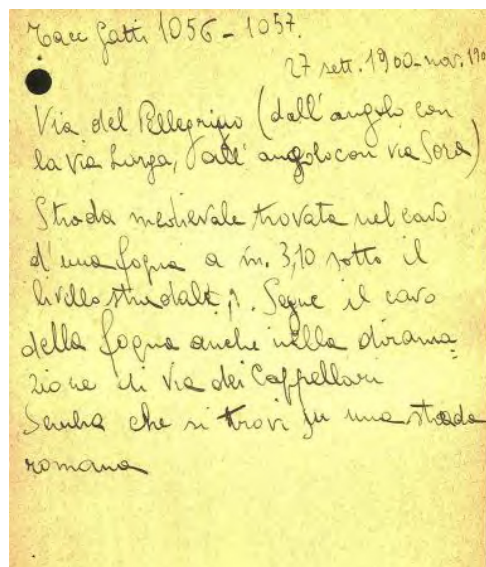 Tacc Gatti 1056 - 1057.
27 sett. 1900 - nov. 190
Via del Pellegrino (dall'angolo con
la via Larga, all'angolo con via Sora)
Strada medievale trovata nel cavo
d'una fogna a m. 3,10 sotto il
livello stradale. Segue il cavo
della fogna anche nella dirama
zione di Via dei Cappellari
Sembra che si trovi su una strada
romana